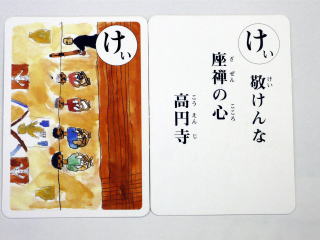 けぃ
けぃ
敬けんな
けい
座禅の心
ざ ぜん こころ
高円寺
こう えん じ